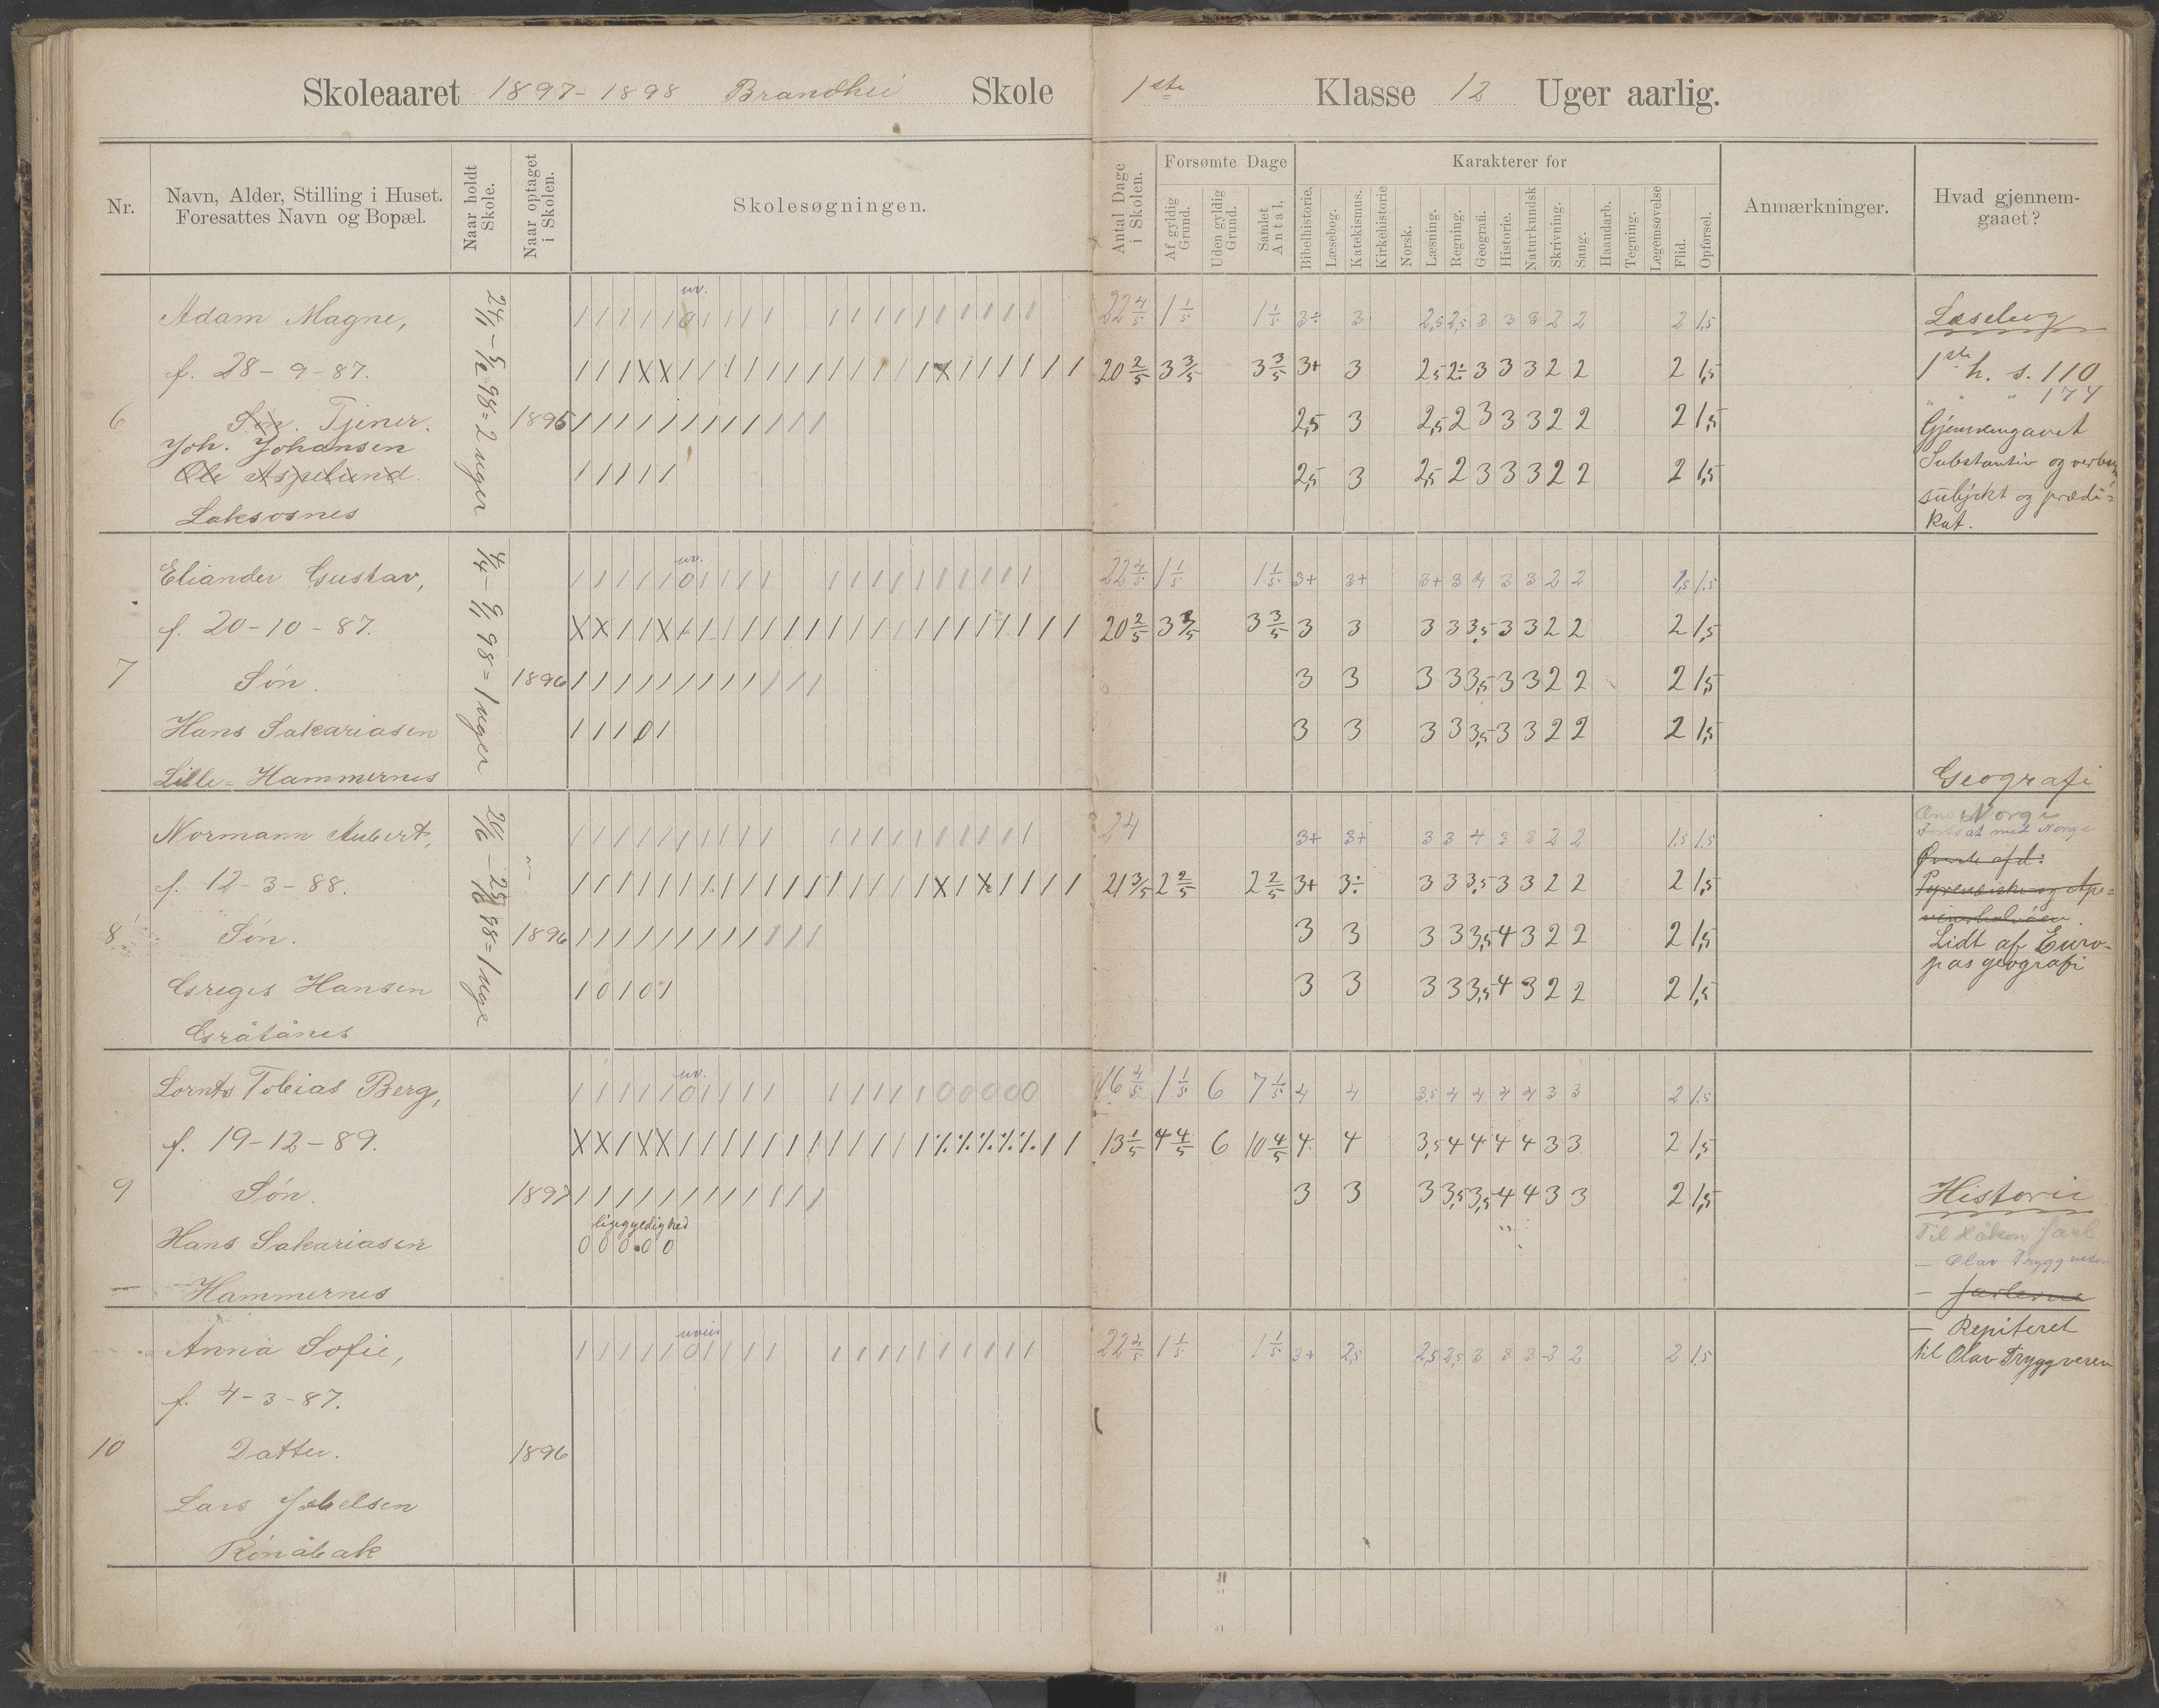 Skoleaaret 1897-1898 Brandhei Skole 1ste Klasse 12 Uger aarlig.
Nr.
Navn, Alder, Stilling i Huset. Foresattes Navn og Bopæl.
Naar holdt Skole.
Naar optaget i Skolen.
Skolesøgningen.
Antal Dage i Skolen.
Forsømte Dage
Af gyldig Grund.
Uden gyldig Grund.
Samlet Antal.
Karakterer for
Bibelhistorie.
Læsebog.
Katekismus.
Kirkehistorie
Norsk.
Læsning.
Regning.
Geografi.
Historie.
Naturkundsk
Skrivning.
Sang.
Haandarb.
Tegning.
Legemsøvelse
Flid.
Opførsel.
Anmærkninger.
Hvad gjennemgaaet?
6
Adam Magne,
f. 28-9-87.
Søn. Tjener.
Joh. Johansen
Ole Aspelund.
Laksosnes
1895
uv.
22 4/5 1 1/5 1 1/5 3÷ 3 2,5 2,5 3 3 3 2 2 2 1,5
20 2/5 3 3/5 3 3/5 3+ 3 2,5 2÷ 3 3 3 2 2 2 1,5
2,5 3 2,5 2 3 3 3 2 2 2 1,5
2,5 3 2,5 2 3 3 3 2 2 2 1,5
Læsebog
1ste h. s. 110
" " " 174
Gjennemgaaet
Substantiv og verbum
subjekt og prædi-
kat.
7
Eliander Gustav,
f. 20-10-87.
Søn.
Hans Sakariasen
Lille-Hammernes
1896
uv.
22 4/5 1 1/5 1 1/5 3+ 3+ 3+ 3 4 3 3 2 2 1,5 1.5
20 2/5 3 3/5 3 3/5 3 3 3 3 3,5 3 3 2 2 2 1,5
3 3 3 3 3,5 3 3 2 2 2 1,5
3 3 3 3 3,5 3 3 2 2 2 1,5
Geografi
8
Normann Aubert,
f. 12-3-88.
Søn.
Greges Hansen
Gråtånes
1896
24 3+ 3+ 3 3 4 3 3 2 2 1.5 1.5
21 3/5 2 2/5 2 2/5 3+ 3÷ 3 3 3,5 3 3 2 2 2 1,5
3 3 3 3 3,5 4 3 2 2 2 1,5
3 3 3 3 3,5 4 3 2 2 2 1,5
Om Norge
Fortsat med Norge
Øverste afd:
Lidt af Euro-
pas geografi
9
Lornts Tobias Berg,
f. 19-12-89.
Søn.
Hans Sakariasen
Hammernes
1897
uv.
ligegyldighed
0 0 0 0 0
16 4/5 1 1/5 6 7 1/5 4 4 3,5 4 4 4 4 3 3 2 1.5
13 1/5 4 4/5 6 10 4/5 4 4 3,5 4 4 4 4 3 3 2 1,5
3 3 3 3,5 3,5 4 4 3 3 2 1,5
Historie
Til Håkon Jarl
— Olav Tryggvesen
— Jarlerne
— Repiteret
til Olav Tryggvesen
10
Anna Sofie,
f. 4-3-87.
Datter.
Lars Jebelsen
Rønåbak
1896
22 4/5 1 1/5 1 1/5 3+ 2,5 2,5 2,5 3 3 3 2 2 2 1.5